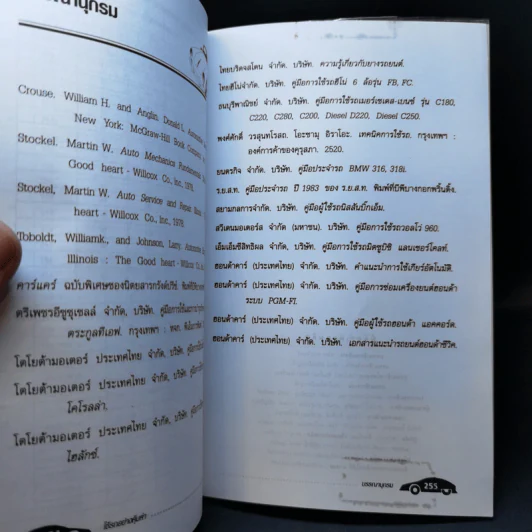 รณานุกรม
Crouse, William H. and Anglin, Donald L. Automotive
New York: McGraw-Hill Book Company,
Stockel. Martin W. Auto Mechanics Fundamental
Good heart - Willcox Co., Inc, 1978.
Stockel, Martin W. Auto Service and Repair.
heart - Willcox Co., Inc, 1978
Tboldt, Williamk., and Johnson, Larry.
Illinois : The Good heart - Willcox
คาร์แคร์ ฉบับพิเศษของนิตยสารกรังด์ปรีซ์.
ตรีเพชรอีซูซุเซลส์ จำกัด, บริษัท. คู่มือการใช้
ตระกูลทีเอฟ. กรุงเทพฯ :
โตโยต้ามอเตอร์ ประเทศไทย จำกัด, บริษัท
โตโยต้ามอเตอร์ ประเทศไทย จำกัด, บริษัท
โคโรลล่า.
โตโยต้ามอเตอร์ ประเทศไทย จำกัด, บริษัท
ไฮลักซ์.
ใช้รถอย่างคุ้มค่า
ไทยบริดจสโตน จำกัด. บริษัท. ความรู้เกี่ยวกับยางรถยนต์.
ไทยฮีโน่จำกัด. บริษัท. คู่มือการใช้รถฮีโน่ 6 ล้อรุ่น FB, FC.
ธนบุรีพาณิชย์ จำกัด. บริษัท. คู่มือการใช้รถเมอร์เซเดส-เบนซ์ รุ่น C180,
C220, C280, C200, Diesel D220, Diesel C250.
พงศ์ศักดิ์ วรสุนทโรสถ. โอะซามุ ฮิราโอะ. เทคนิคการใช้รถ. กรุงเทพฯ :
องค์การค้าของคุรุสภา. 2520.
ยนตรกิจ จำกัด. บริษัท. คู่มือประจำรถ BMW 316, 318i.
ร.ย.ส.ท. คู่มือประจำรถ ปี 1983 ของ ร.ย.ส.ท. พิมพ์ที่บีพีบางกอกพริ้นติ้ง.
สยามกลการจำกัด. บริษัท. คู่มือผู้ใช้รถนิสสันบิ๊กเอ็ม.
สวีเดนมอเตอร์ส จำกัด (มหาชน). บริษัท. คู่มือการใช้รถวอลโว่ 960.
เอ็มเอ็มซีสิทธิผล จำกัด. บริษัท. คู่มือการใช้รถมิตซูบิชิ แลนเซอร์โคลท์.
ฮอนด้าคาร์ (ประเทศไทย) จำกัด. บริษัท. คำแนะนำการใช้เกียร์อัตโนมัติ.
ฮอนด้าคาร์ (ประเทศไทย) จำกัด. บริษัท. คู่มือการซ่อมเครื่องยนต์ฮอนด้า
ระบบ PGM-FI.
ฮอนด้าคาร์ (ประเทศไทย) จำกัด. บริษัท. คู่มือผู้ใช้รถฮอนด้า แอคคอร์ด.
ฮอนด้าคาร์ (ประเทศไทย) จำกัด. บริษัท. เอกสารแนะนำรถยนต์ฮอนด้าซีวิค.
บรรณานุกรม
255